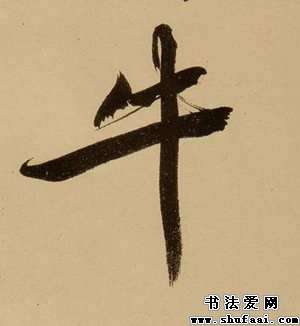 牛
书法爱网
www.shufaai.com